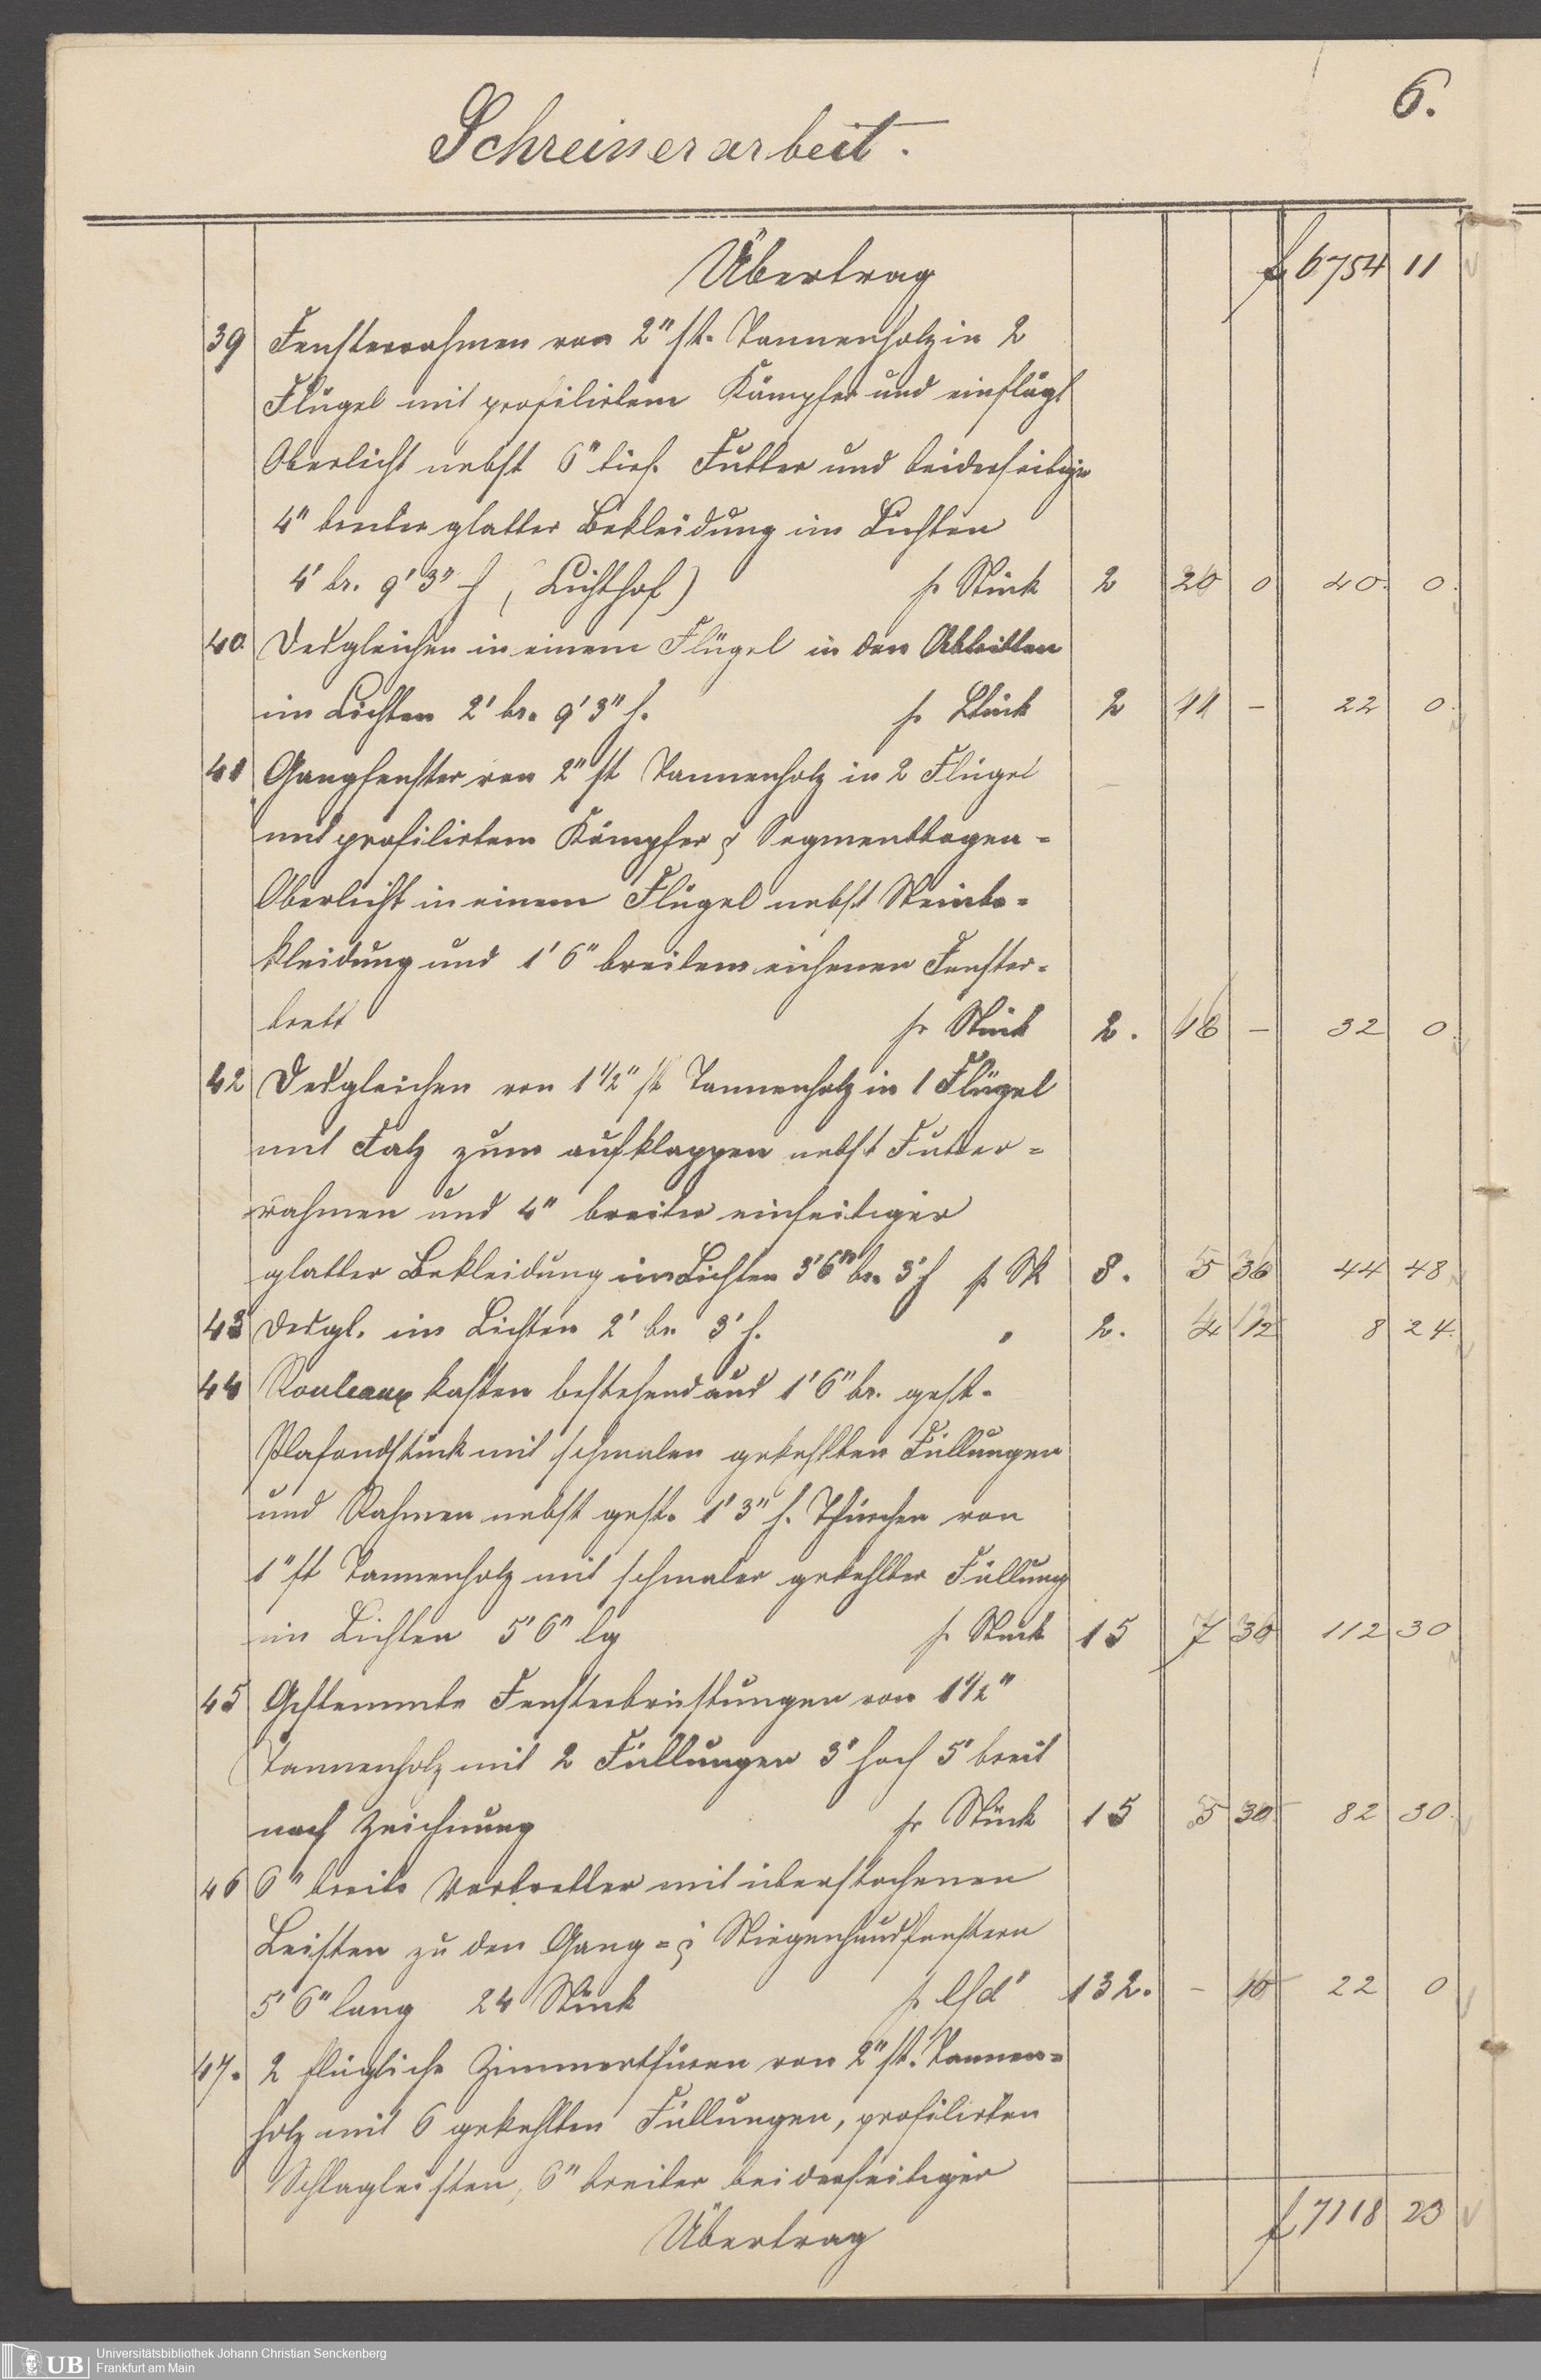 6.
Schreinerarbeit.
Übertrag f 6754 11
39 Fensterrahmen von 2" st. Tannenholz in 2
Flügel mit profilirtem Kämpfer und einflügl
Oberlicht nebst 6" tief. Futter und beiderseitiger
4" breiter glatter Bekleidung im Lichten
4' br. 9' 3" h (Lichthof) pr Stück 2 20 0 40. 0.
40 Desgleichen in einem Flügel in den Abtritten
im Lichten 2' br. 9' 3" h. pr Stück 2 11 – 22 0.
41 Gangfenster von 2" st Tannenholz in 2 Flügel
mit profilirtem Kämpfer & Segmentbogen-
Oberlicht in einem Flügel nebst Steinbe-
kleidung und 1' 6" breitem eichenen Fenster-
brett pr Stück 2. 16 – 32 0.
42 Desgleichen von 1 1/2" st Tannenholz in 1 Flügel
mit Falz zum aufklappen nebst Futter-
rahmen und 4" breiter einseitiger
glatter Bekleidung im Lichten 3' 6" br. 3' h pr St 8. 5 36 44 48
43 desgl. im Lichten 2' br 3' h. " 2. 4 12 8 24.
44 Rouleaux kasten bestehend aus 1' 6" br. gest.
Plafondstück mit schmalen gekehlten Füllungen
und Rahmen nebst gest. 1' 3" h. Thürchen von
1" st Tannenholz mit schmaler gekehlter Füllung
im Lichten 5' 6" lg pr Stück 15 7 30 112 30
45 Gestemmte Fensterbrüstungen von 1 1/2"
Tannenholz mit 2 Füllungen 3' hoch 5' breit
nach Zeichnung pr Stück 15 5 30 82 30.
46 6" breite Vorbretter mit überstochenen
Leisten zu den Gang- & Stiegenhausfenstern
5' 6" lang 24 Stück pr lfd' 132. – 10 22 0
47. 2 flügliche Zimmerthüren von 2" st. Tannen-
holz mit 6 gekehlten Füllungen, profilirten
Schlagleisten, 6" breiter beiderseitiger
Übertrag f 7118 23
UB Universitätsbibliothek Johann Christian Senckenberg
Frankfurt am Main